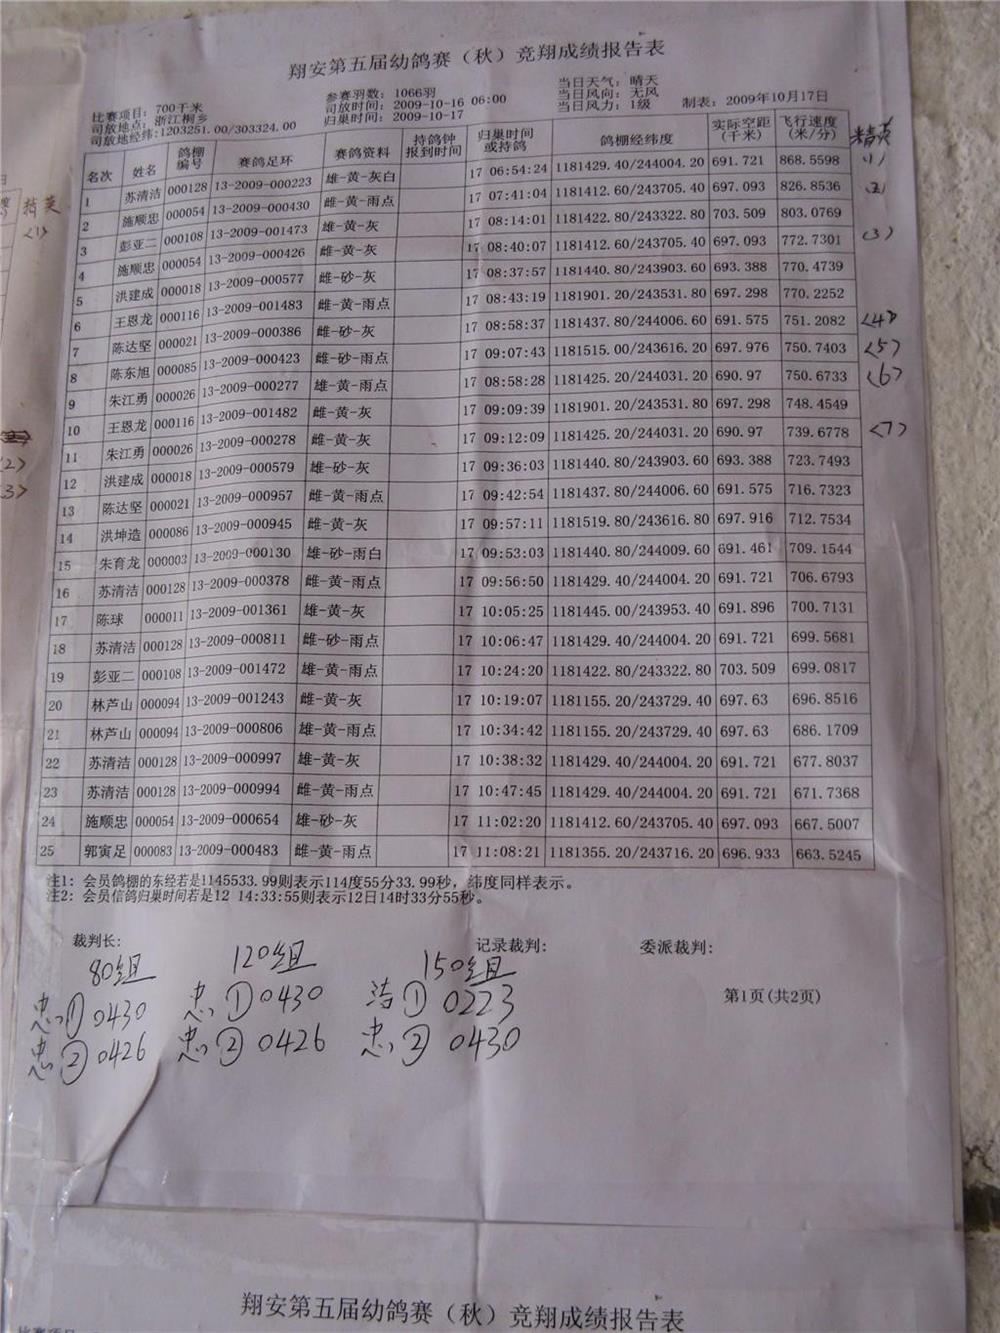 翔安第五届幼鸽赛（秋）竞翔成绩报告表
比赛项目: 700千米 参赛羽数: 1066羽 当日天气: 晴天
司放地点: 浙江桐乡 司放时间: 2009-10-16 06:00 当日风向: 无风
司放地经纬:1203251.00/303324.00 归巢时间: 2009-10-17 当日风力: 1级 制表: 2009年10月17日
名次 姓名 鸽棚编号 赛鸽足环 赛鸽资料 持鸽钟报到时间 归巢时间或持鸽 鸽棚经纬度 实际空距(千米) 飞行速度(米/分) 精英
1 苏清洁 000128 13-2009-000223 雄-黄-灰白 17 06:54:24 1181429.40/244004.20 691.721 868.5598 (1)
2 施顺忠 000054 13-2009-000430 雌-黄-雨点 17 07:41:04 1181412.60/243705.40 697.093 826.8536 (2)
3 彭亚二 000108 13-2009-001473 雌-黄-灰 17 08:14:01 1181422.80/243322.80 703.509 803.0769
4 施顺忠 000054 13-2009-000426 雌-黄-灰 17 08:40:07 1181412.60/243705.40 697.093 772.7301 (3)
5 洪建成 000018 13-2009-000577 雌-砂-灰 17 08:37:57 1181440.80/243903.60 693.388 770.4739
6 王恩龙 000116 13-2009-001483 雌-黄-雨点 17 08:43:19 1181901.20/243531.80 697.298 770.2252
7 陈达坚 000021 13-2009-000386 雌-砂-灰 17 08:58:37 1181437.80/244006.60 691.575 751.2082 <4>
8 陈东旭 000085 13-2009-000423 雌-砂-雨点 17 09:07:43 1181515.00/243616.20 697.976 750.7403 <5>
9 朱江勇 000026 13-2009-000277 雌-黄-雨点 17 08:58:28 1181425.20/244031.20 690.97 750.6733 <6>
10 王恩龙 000116 13-2009-001482 雌-黄-灰 17 09:09:39 1181901.20/243531.80 697.298 748.4549
11 朱江勇 000026 13-2009-000278 雌-黄-灰 17 09:12:09 1181425.20/244031.20 690.97 739.6778 <7>
12 洪建成 000018 13-2009-000579 雄-砂-灰 17 09:36:03 1181440.80/243903.60 693.388 723.7493
13 陈达坚 000021 13-2009-000957 雌-黄-雨点 17 09:42:54 1181437.80/244006.60 691.575 716.7323
14 洪坤造 000086 13-2009-000945 雌-黄-灰 17 09:57:11 1181519.80/243616.80 697.916 712.7534
15 朱育龙 000003 13-2009-000130 雄-砂-雨白 17 09:53:03 1181440.80/244009.60 691.461 709.1544
16 苏清洁 000128 13-2009-000378 雄-黄-雨点 17 09:56:50 1181429.40/244004.20 691.721 706.6793
17 陈球 000011 13-2009-001361 雄-黄-灰 17 10:05:25 1181445.00/243953.40 691.896 700.7131
18 苏清洁 000128 13-2009-000811 雌-砂-雨点 17 10:06:47 1181429.40/244004.20 691.721 699.5681
19 彭亚二 000108 13-2009-001472 雄-黄-雨点 17 10:24:20 1181422.80/243322.80 703.509 699.0817
20 林芦山 000094 13-2009-001243 雌-黄-灰 17 10:19:07 1181155.20/243729.40 697.63 696.8516
21 林芦山 000094 13-2009-000806 雄-黄-雨点 17 10:34:42 1181155.20/243729.40 697.63 686.1709
22 苏清洁 000128 13-2009-000997 雄-黄-灰 17 10:38:32 1181429.40/244004.20 691.721 677.8037
23 苏清洁 000128 13-2009-000994 雌-黄-雨点 17 10:47:45 1181429.40/244004.20 691.721 671.7368
24 施顺忠 000054 13-2009-000654 雄-砂-灰 17 11:02:20 1181412.60/243705.40 697.093 667.5007
25 郭寅足 000083 13-2009-000483 雌-黄-雨点 17 11:08:21 1181355.20/243716.20 696.933 663.5245
注1: 会员鸽棚的东经若是1145533.99则表示114度55分33.99秒，纬度同样表示。
注2: 会员信鸽归巢时间若是12 14:33:55则表示12日14时33分55秒。
裁判长: 记录裁判: 委派裁判:
80组 120组 150组
忠①0430 忠①0430 洁①0223
忠②0426 忠②0426 忠②0430
第1页(共2页)
翔安第五届幼鸽赛（秋）竞翔成绩报告表